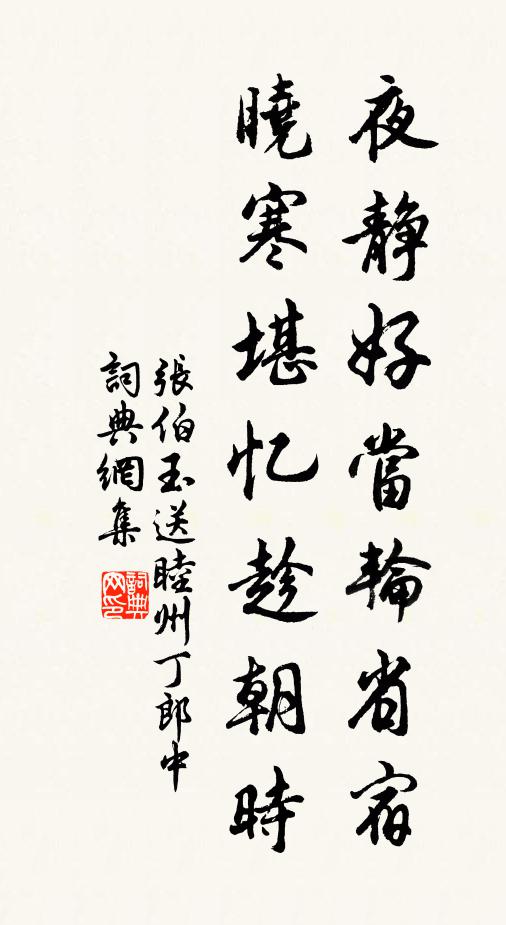 夜静好當輪省宿
曉寒堪忆趁朝時
張伯玉送睦州丁郎中
詞典網集
詞典网印